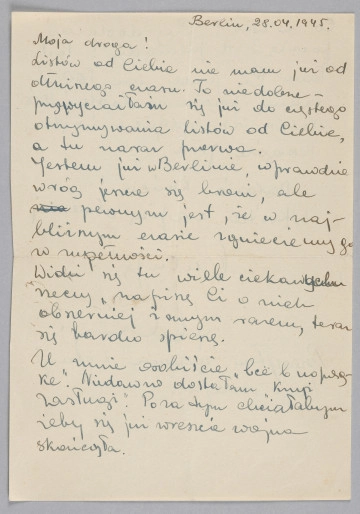 Berlin, 28.04.1945.
Moja droga!
Listów od Ciebie nie mam już od
dłuższego czasu. To niedobrze –
przyzwyczaiłam się już do częstego
otrzymywania listów od Ciebie,
a tu naraz przerwa.
Jestem już w Berlinie, wprawdzie
wróg jeszcze się broni, ale
pewnym jest, że w naj-
bliższym czasie zgnieciemy go
w zupełności.
Widzi się tu wiele ciekawych
rzeczy, napiszę Ci o nich
obszerniej innym razem, teraz
się bardzo spieszę.
U mnie osobiście „
Niedawno dostałam krzyż
zasługi". Poza tym chciałabym
żeby się już wreszcie wojna
skończyła.